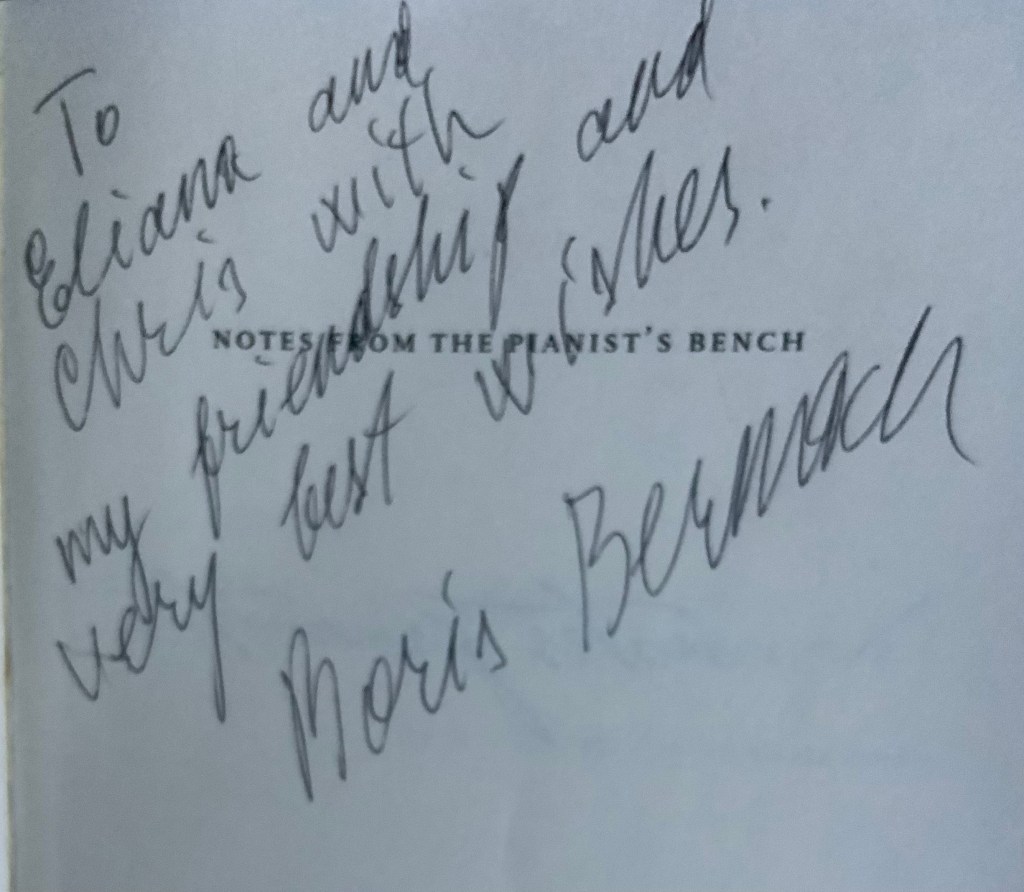 To
Eliana and
Chris with
my friendship and
very best wishes.
NOTES FROM THE PIANIST'S BENCH
Boris Berman